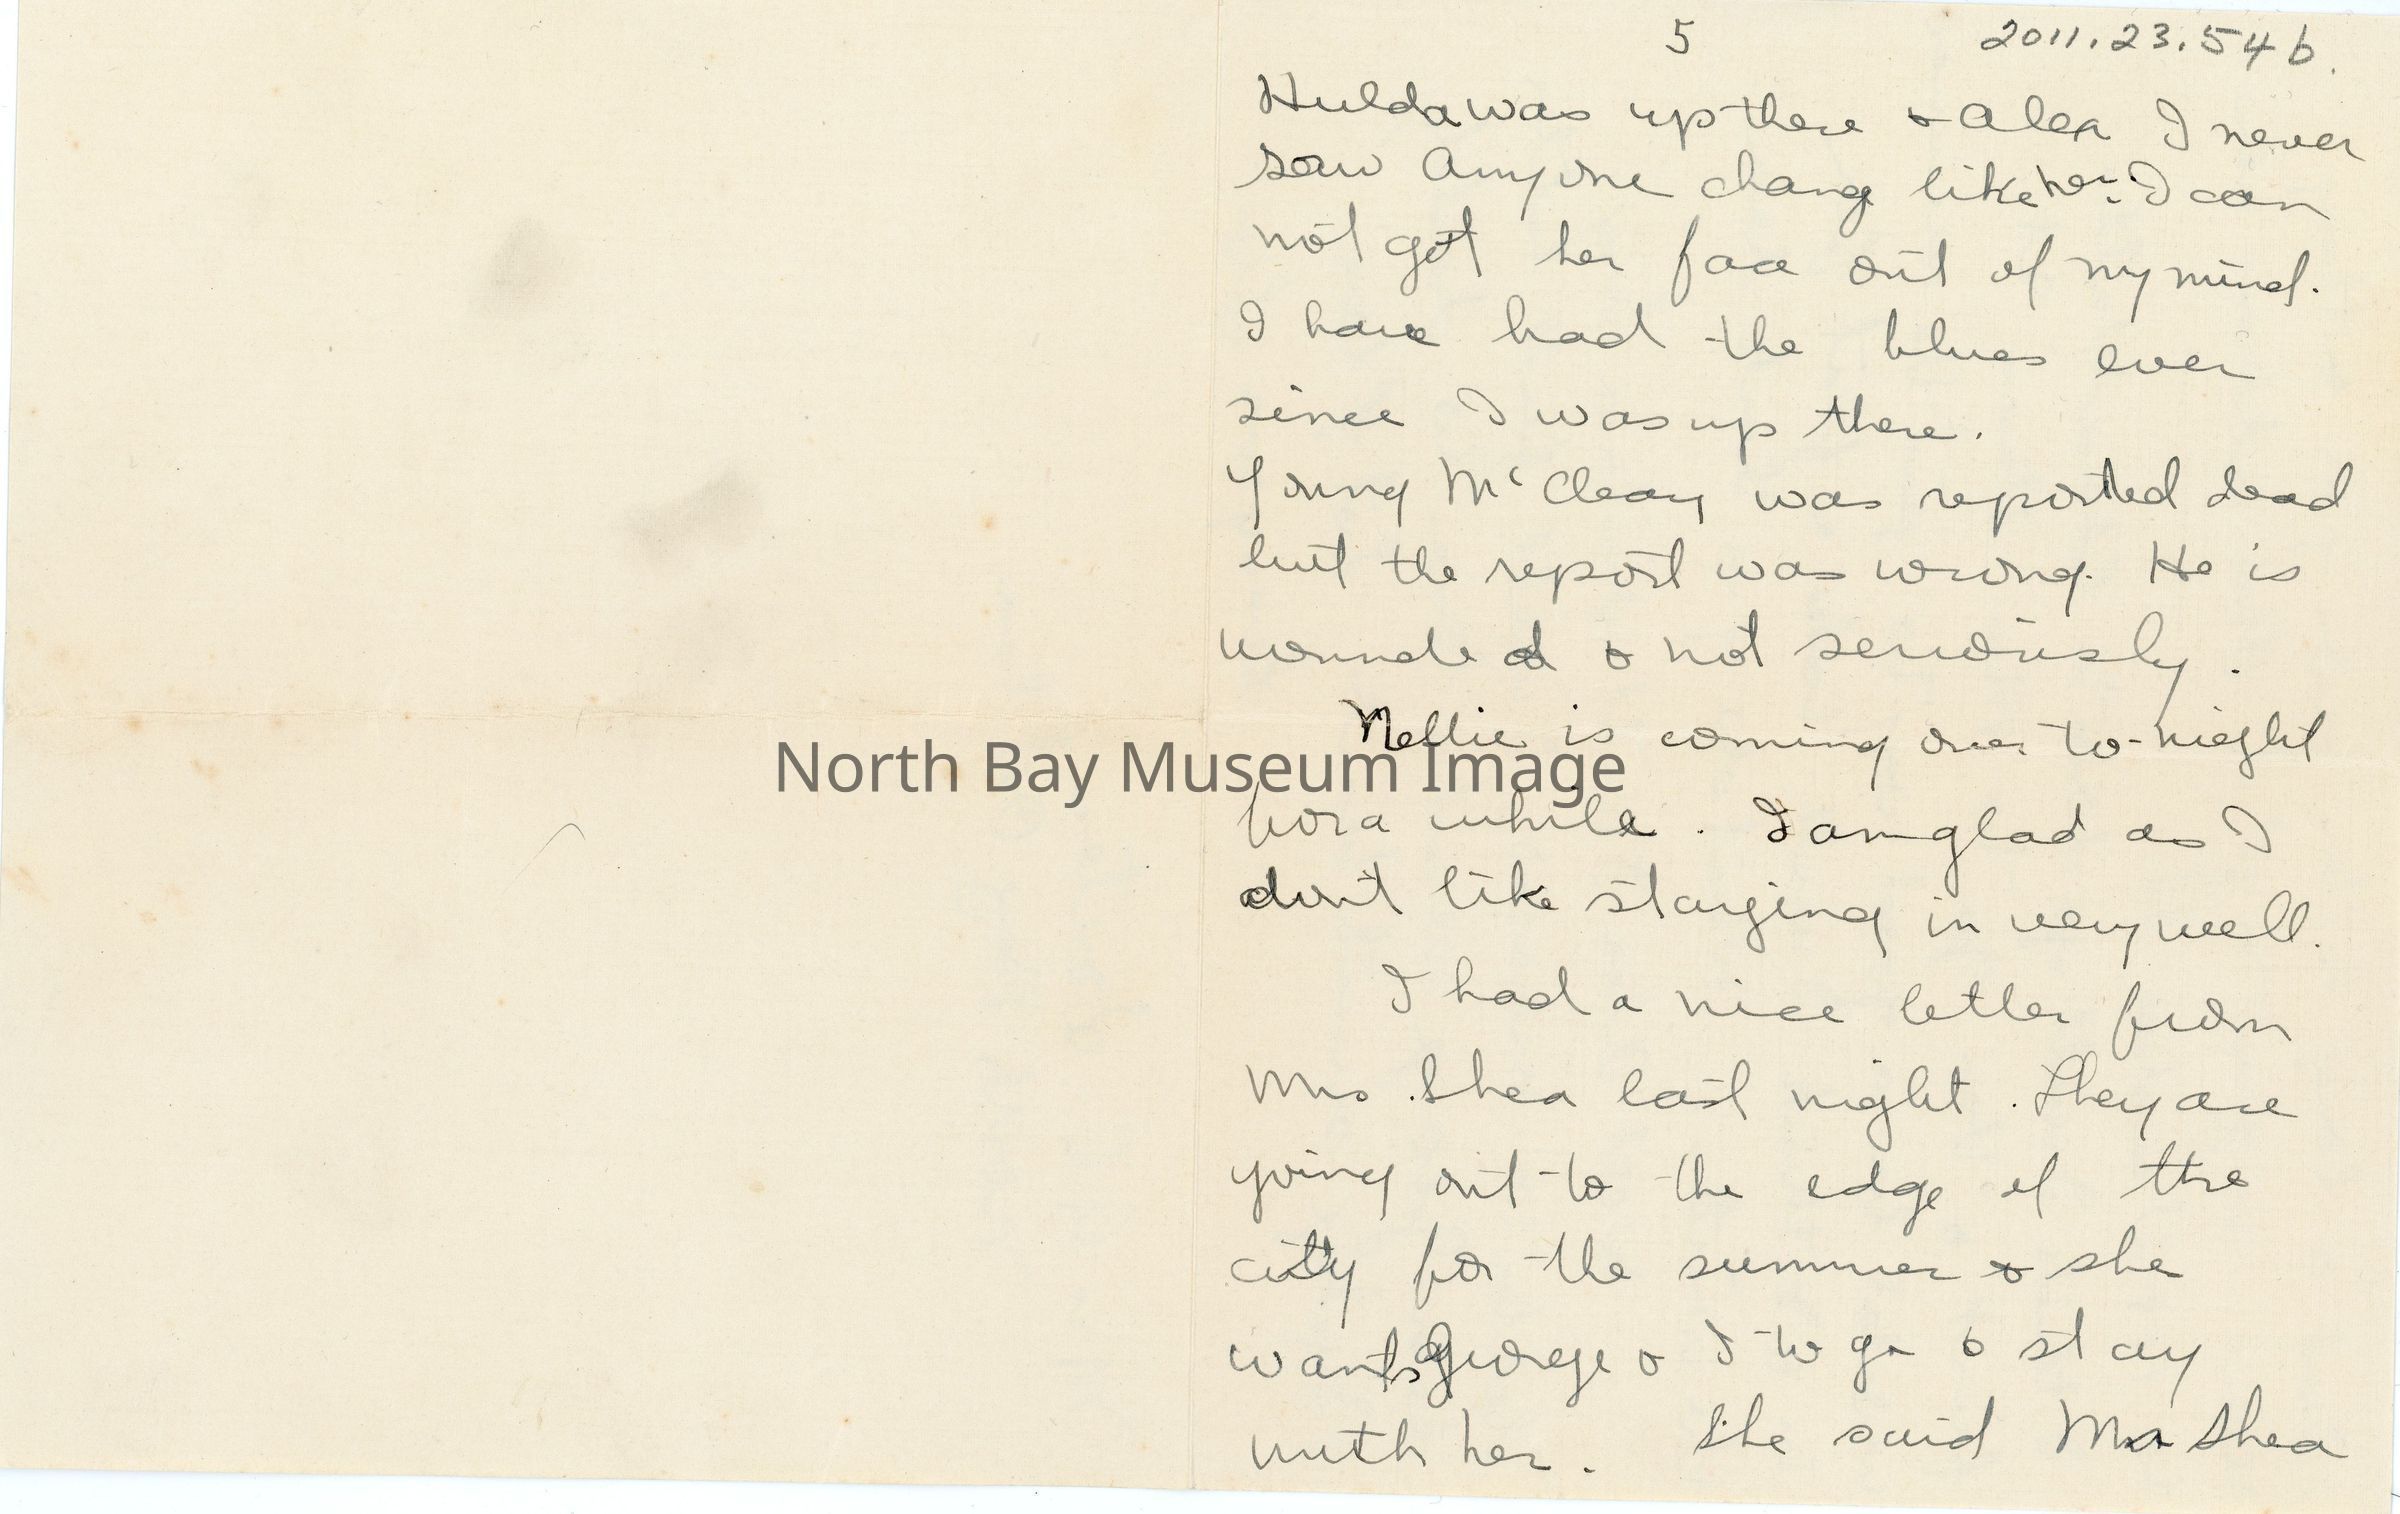 5
2011.23.54b.
Hulda was up there & Alex I never
saw Anyone chang like her. I can
not got her face out of my mind.
I have had the blues ever
since I was up there.
Young McCleary was reported dead
but the report was wrong. He is
wounded & not seriously.
Nellie is coming over to-night
North Bay Museum Image
for a while. I am glad as I
don't like staying in very well.
I had a nice letter from
Mrs. Shea last night. They are
going out to the edge of the
city for the summer & she
wants George & I to go & stay
with her. She said Mr Shea